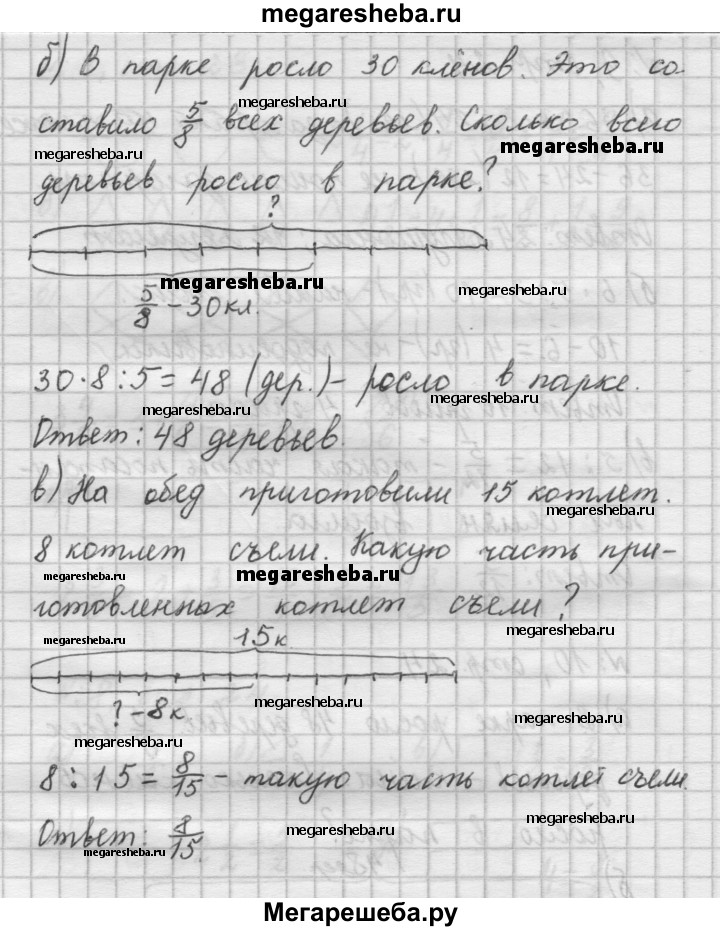 megaresheba.ru
б) В парке росло 30 клёнов. Это со-
megaresheba.ru
ставило 5/8 всех деревьев. Сколько всего
megaresheba.ru megaresheba.ru
деревьев росло в парке?
?
megaresheba.ru megaresheba.ru
5/8 - 30 кл.
30·8:5=48 (дер.) - росло в парке.
megaresheba.ru megaresheba.ru
Ответ: 48 деревьев.
в) На обед приготовили 15 котлет.
megaresheba.ru
8 котлет съели. Какую часть при-
megaresheba.ru megaresheba.ru
готовленных котлет съели?
megaresheba.ru 15 к. megaresheba.ru
megaresheba.ru
? - 8 к. megaresheba.ru
megaresheba.ru
8:15 = 8/15 - такую часть котлет съели.
Ответ: 8/15.
megaresheba.ru megaresheba.ru
megaresheba.ru
Мегарешеба.ру